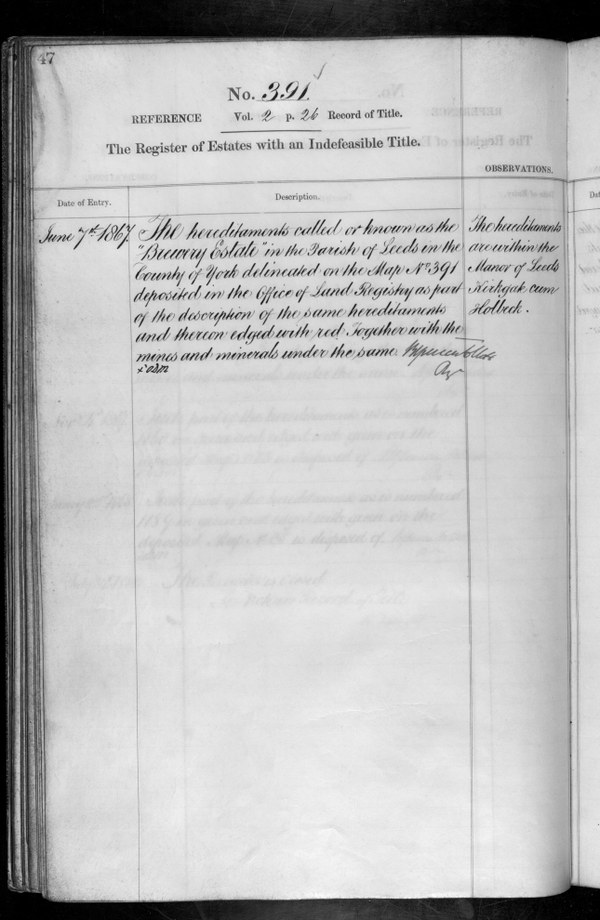 47
No. 391.
REFERENCE Vol. 2 p. 26 Record of Title.
The Register of Estates with an Indefeasible Title.
OBSERVATIONS.
Date of Entry.
Description.
June 7th 1867
The hereditaments called or known as the
"Brewery Estate" in the Parish of Leeds in the
County of York delineated on the Map No 391
deposited in the Office of Land Registry as part
of the description of the same hereditaments
and thereon edged with red Together with the
mines and minerals under the same
The hereditaments
are within the
Manor of Leeds
Kirkgate cum
Holbeck.